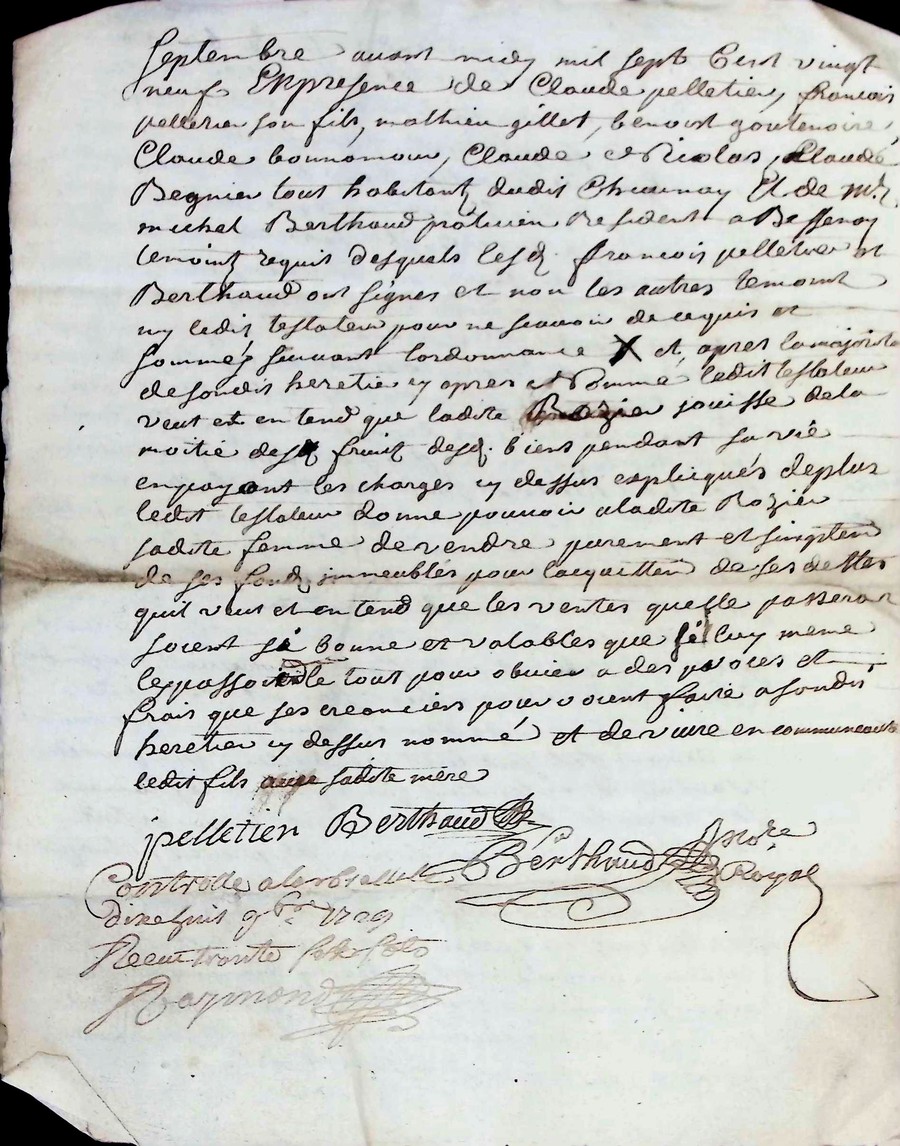 Septembre avant midy mil sept Cent vingt
neuf Enpresence de Claude pelletier, francois
pelletier son fils, mathieu gillet, benoist goutenoire,
Claude bonnamour, Claude et Nicolas, Claude
Regnier tout habitantz dudit Chaunay Et de mr.
michel Berthaud praticien Resident a Bessenay
temointz requit desquels lesd. francois pelletier et
Berthaud ont signes et non les autres temoint
ny ledit testateur pour ne scavoir de ce quis et
sommés suivant lordonnance X et, apres la majorité
desondit heretie cy apres et nommé ledit testateur
veut et entend que ladite Rozier jouisse dela
moitié desd fruitz desd. biens pendant sa vie
en payant les charges cy dessus expliqués deplus
ledit testateur donne pouvoir aladite Rozier
sadite femme de vendre purement et simptem
de ses fondz immeubles pour lacquitter de ses dettes
quil veut et entend que les ventes quelle passera
soient si bonne et valables que sil luy meme
les passoit le tout pour obvier a des proces et
frais que ses creanciers pourroient faire asondit
heretier cy dessus nommé et de vivre en communeauté
ledit fils avec sadite mère
pelletier Berthaud
Berthaud No.re
Royal
Controlle alarbrelle
dixehuit 9bre 1729
Receu trente six sols
Raymond